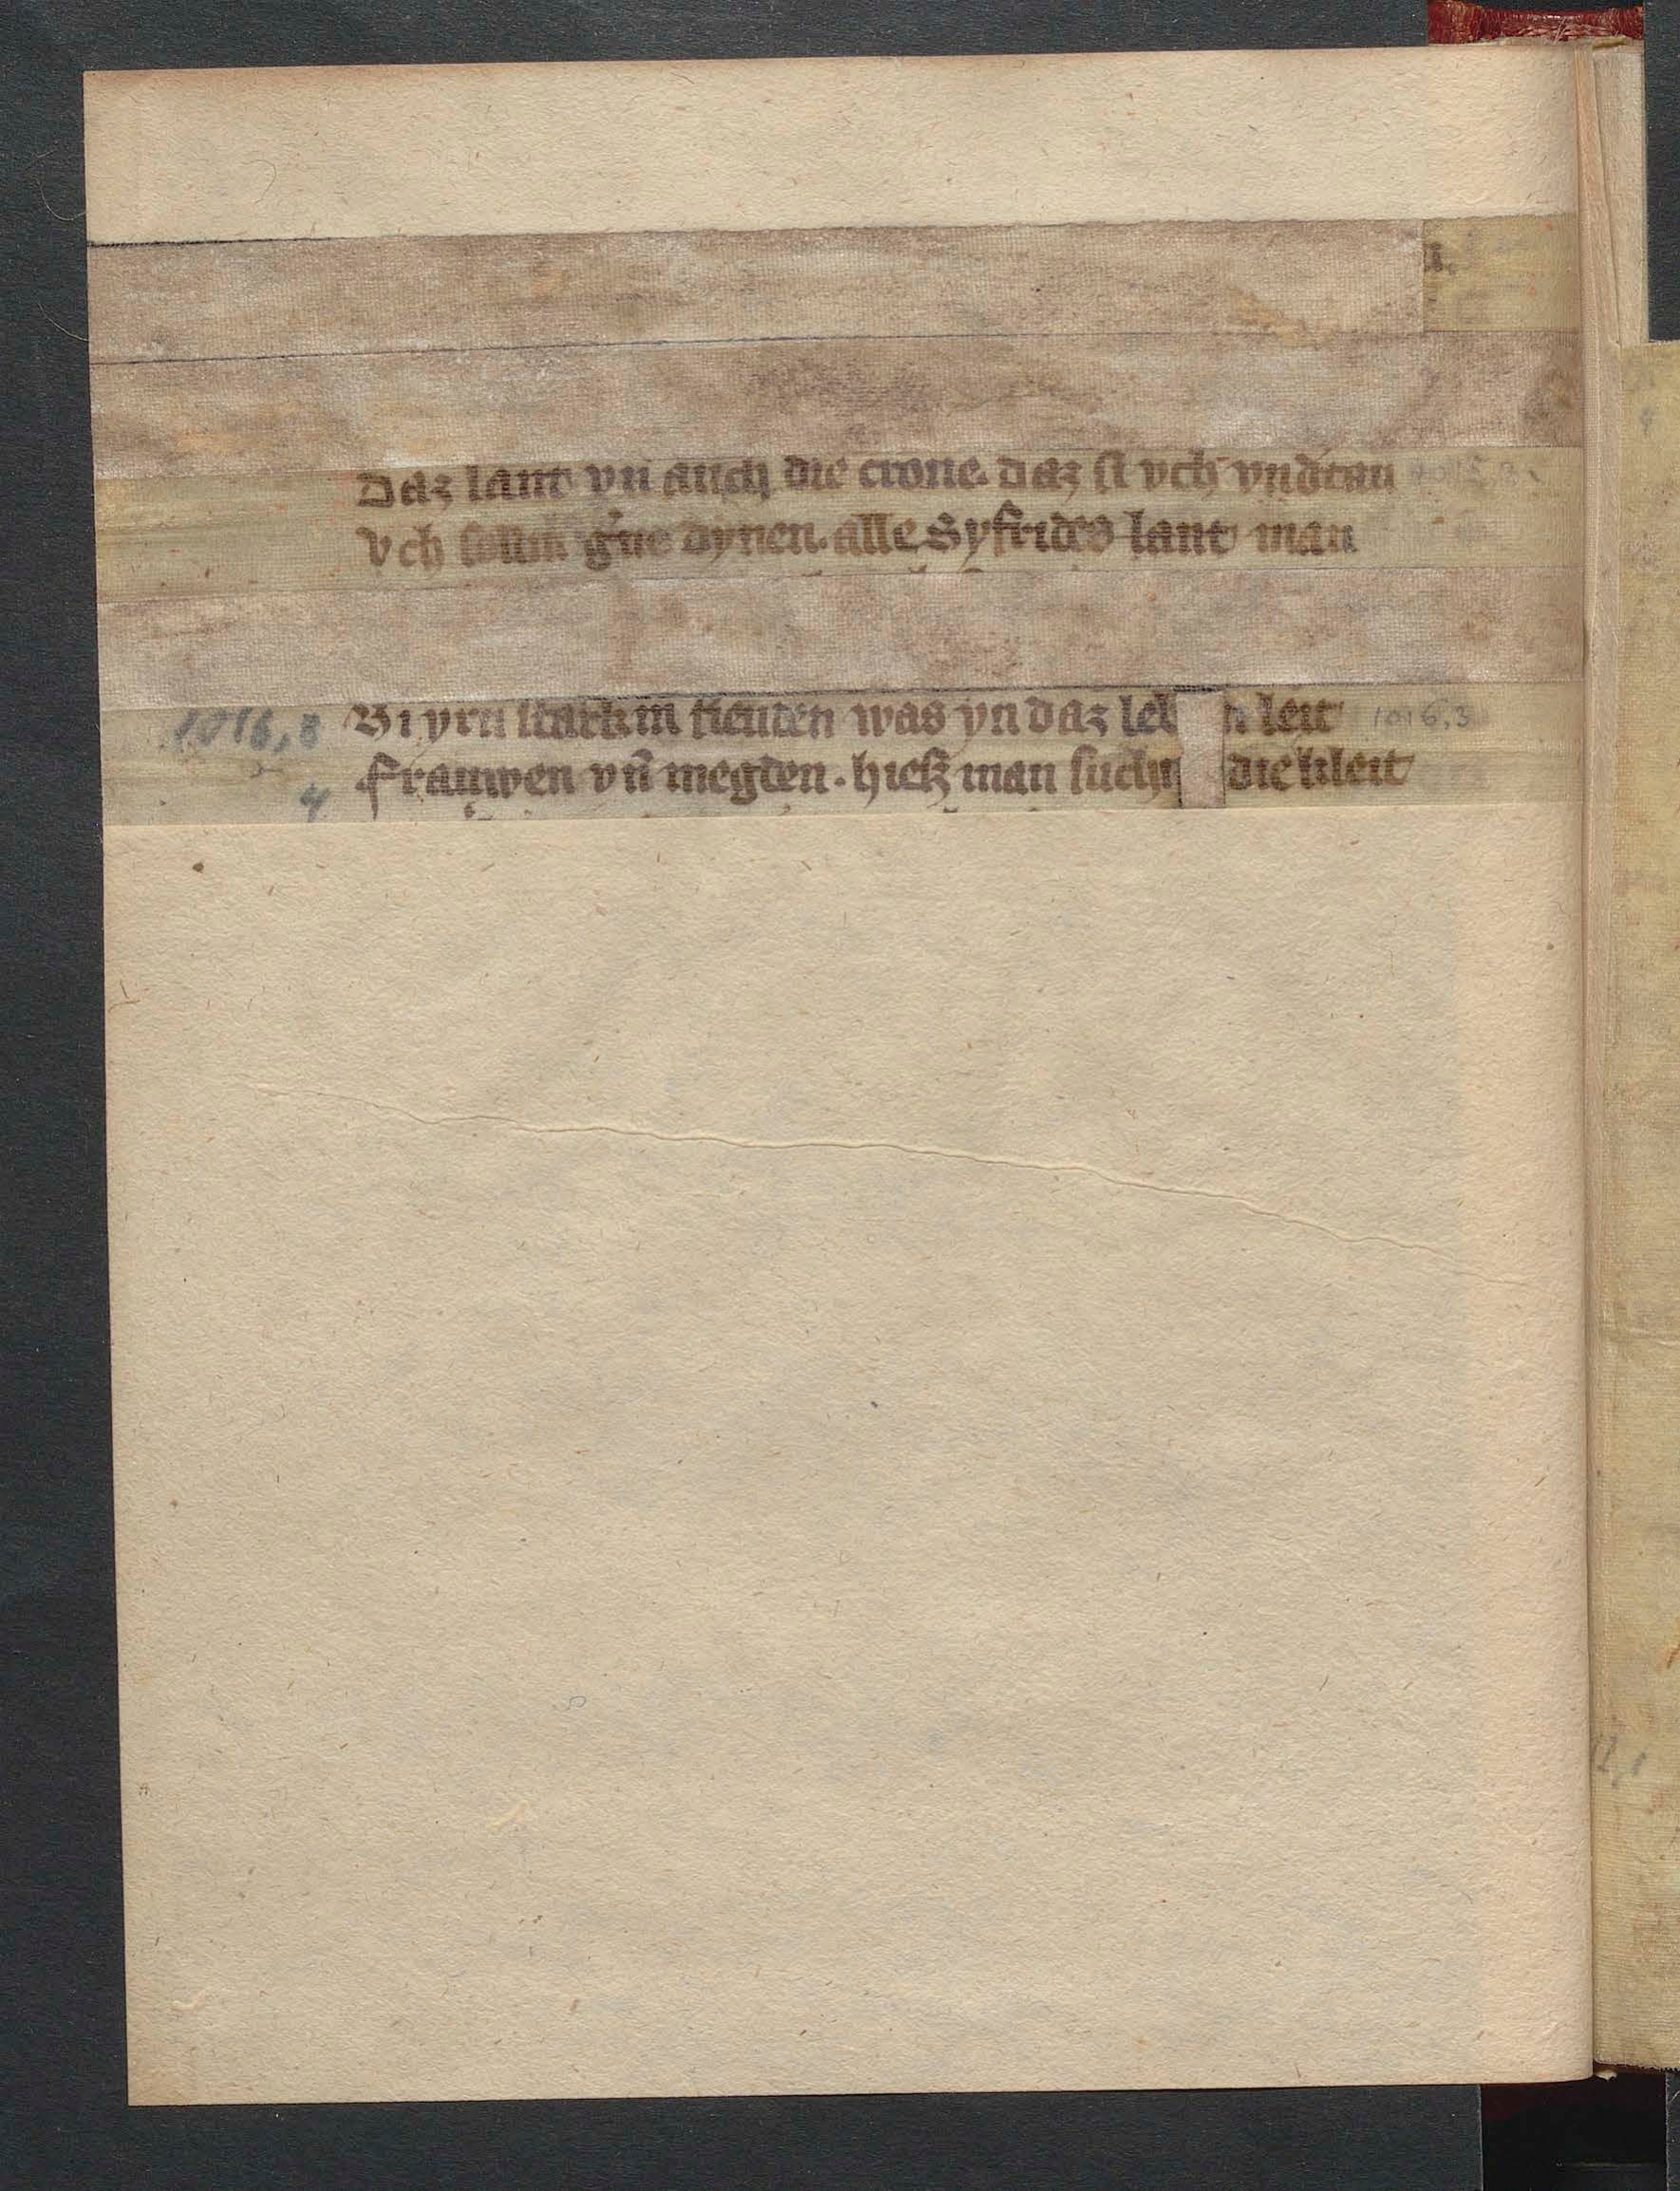 Daz lant vn̄ auch die crone. daz si vch vnd̕tan
Vch sollin g̕ne dynen. alle Syfrides lant man
1016,3 Bi yrn starkin freuden was yn daz leb n leit 1016,3
4 Frauwen vn̄ megden. hiesz man suchin die kleit